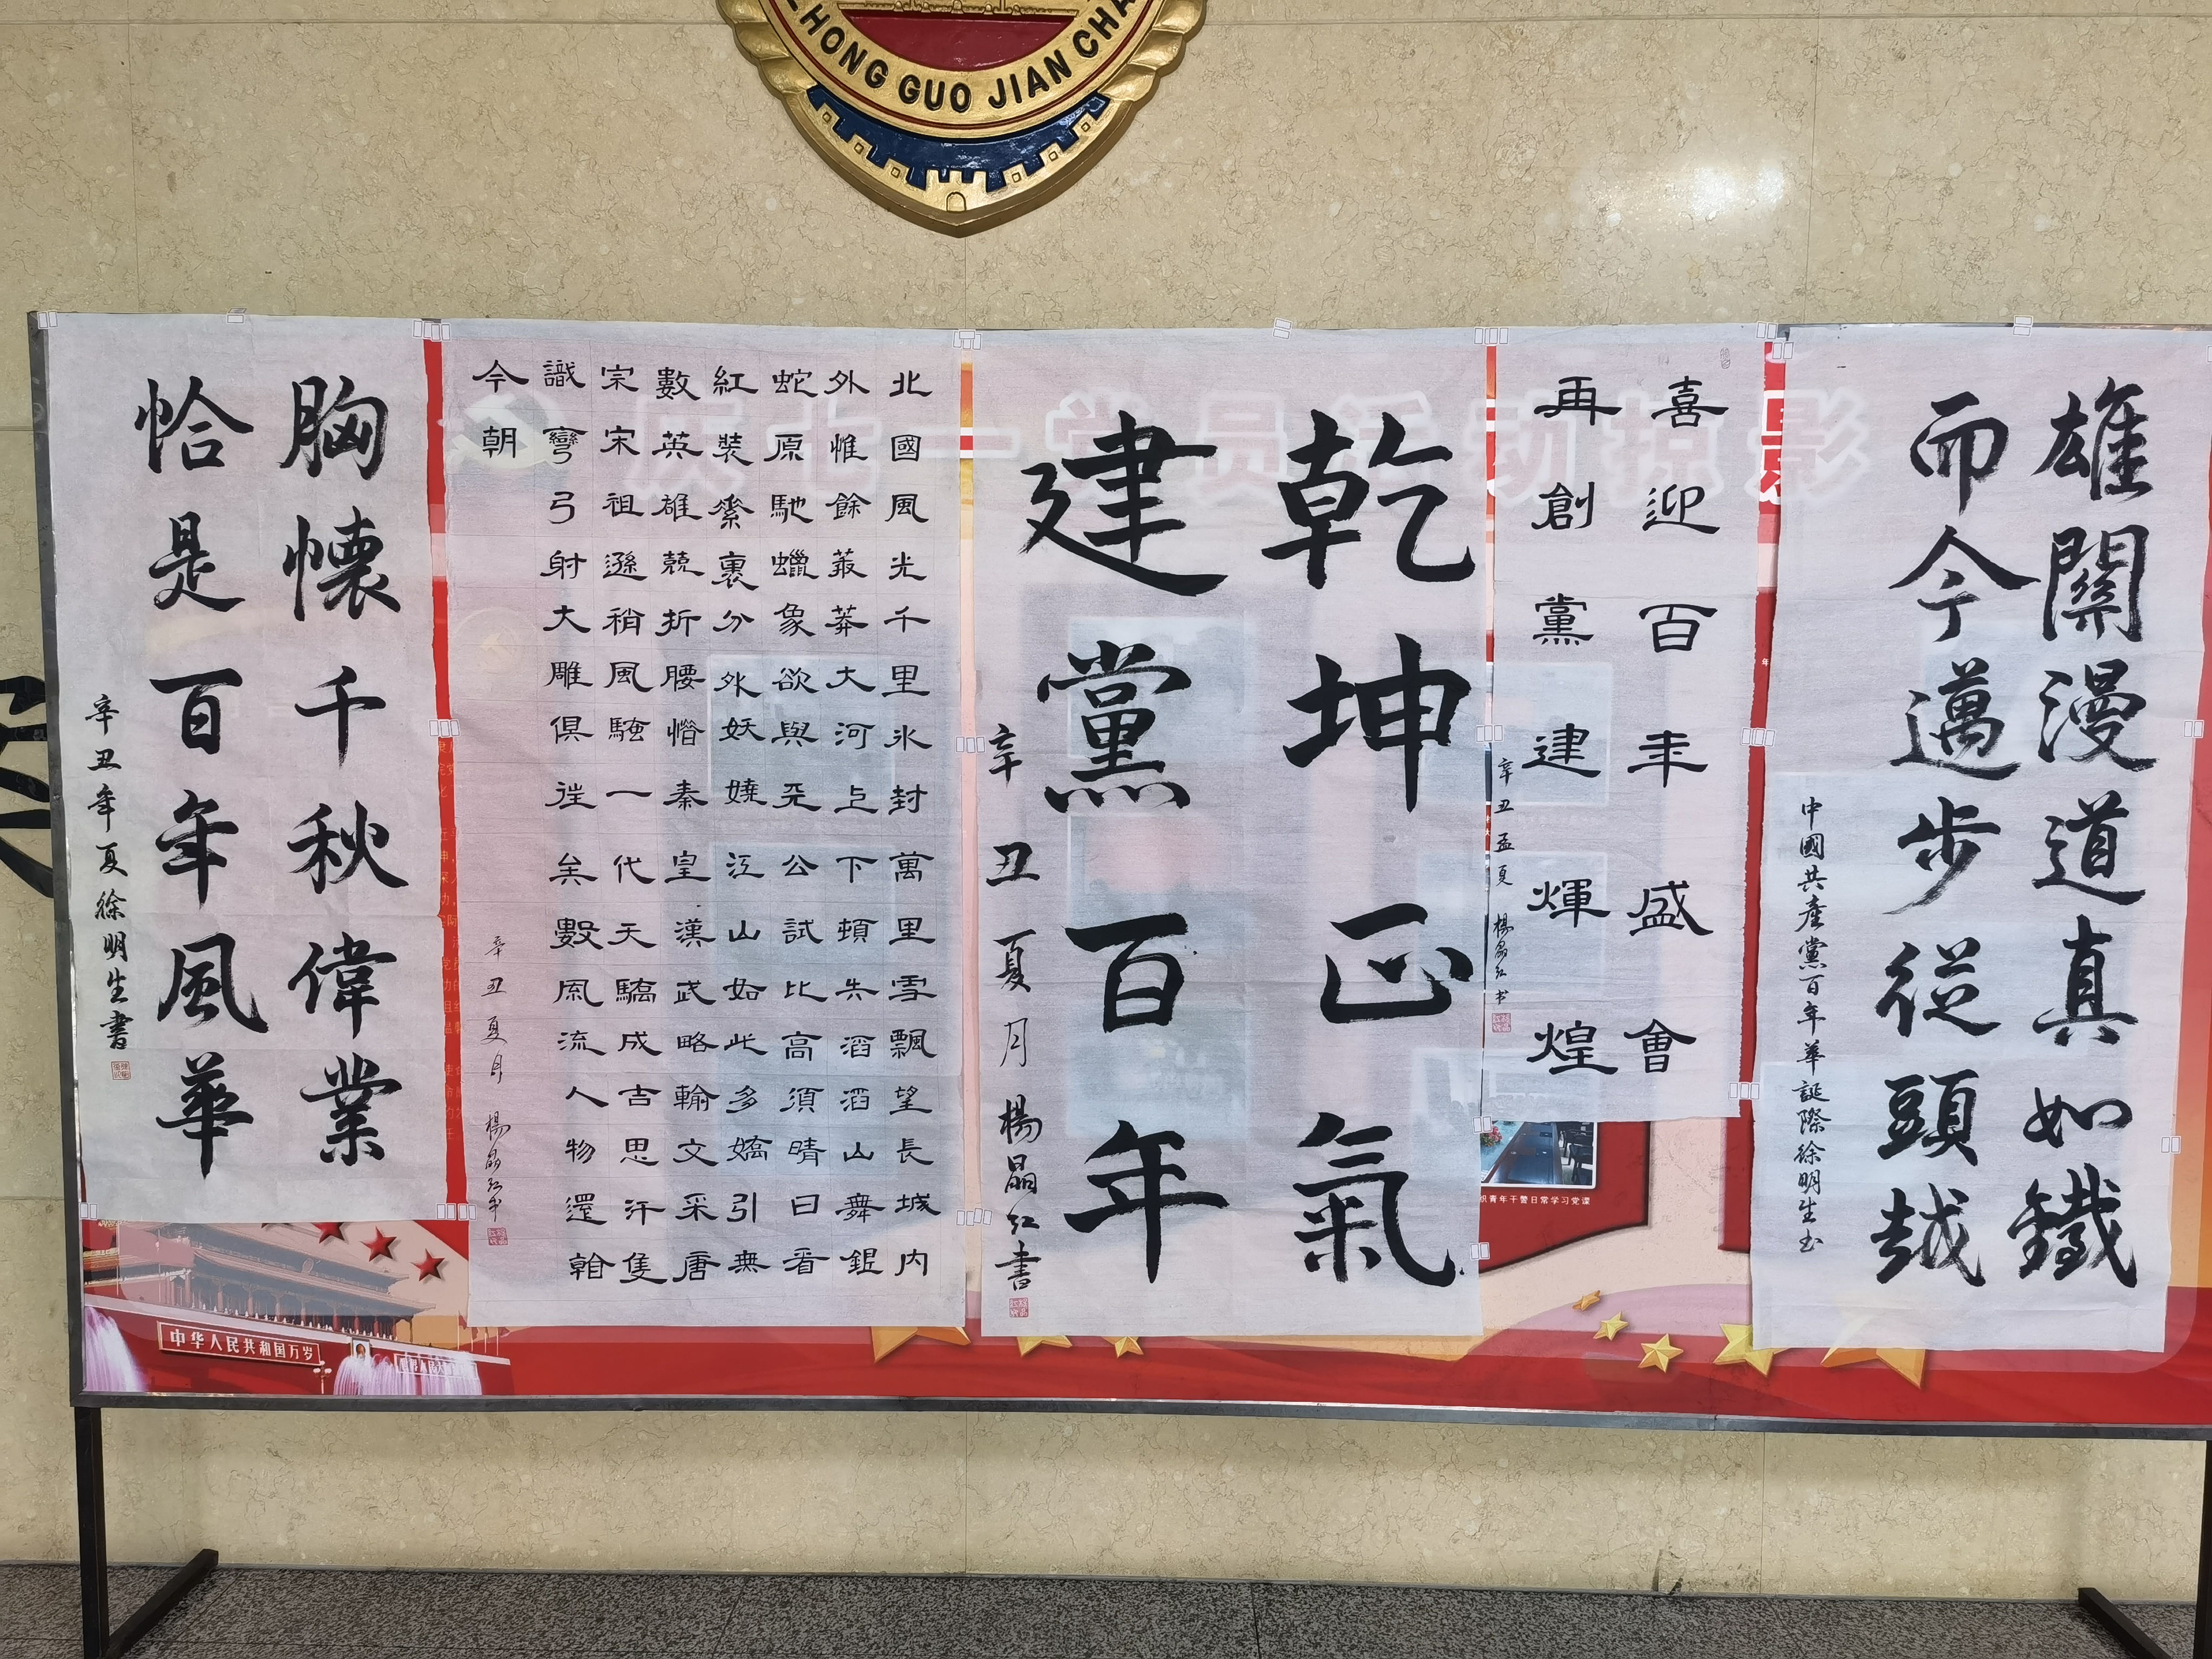 ZHONG GUO JIAN CHA
雄關漫道真如鐵
而今邁步從頭越
中國共產黨百年華誕際徐明生书
喜迎百年盛會
再創黨建輝煌
辛丑孟夏 楊晶红书
乾坤正氣
建黨百年
辛丑夏月楊晶红書
北國風光千里氷封萬里雪飄望長城内
外惟餘莽莽大河上下頓失滔滔山舞銀
蛇原馳蠟象欲與天公試比高須晴日看
紅裝素裹分外妖嬈江山如此多嬌引無
數英雄競折腰惜秦皇漢武略輸文采唐
宗宋祖遜稍風騷一代天驕成吉思汗隻
識彎弓射大雕俱往矣數風流人物還看
今朝
辛丑夏月 楊晶红书
胸懷千秋偉業
恰是百年風華
辛丑年夏徐明生書
庆七一党员活动掠影
中华人民共和国万岁
织青年干警日常学习党课